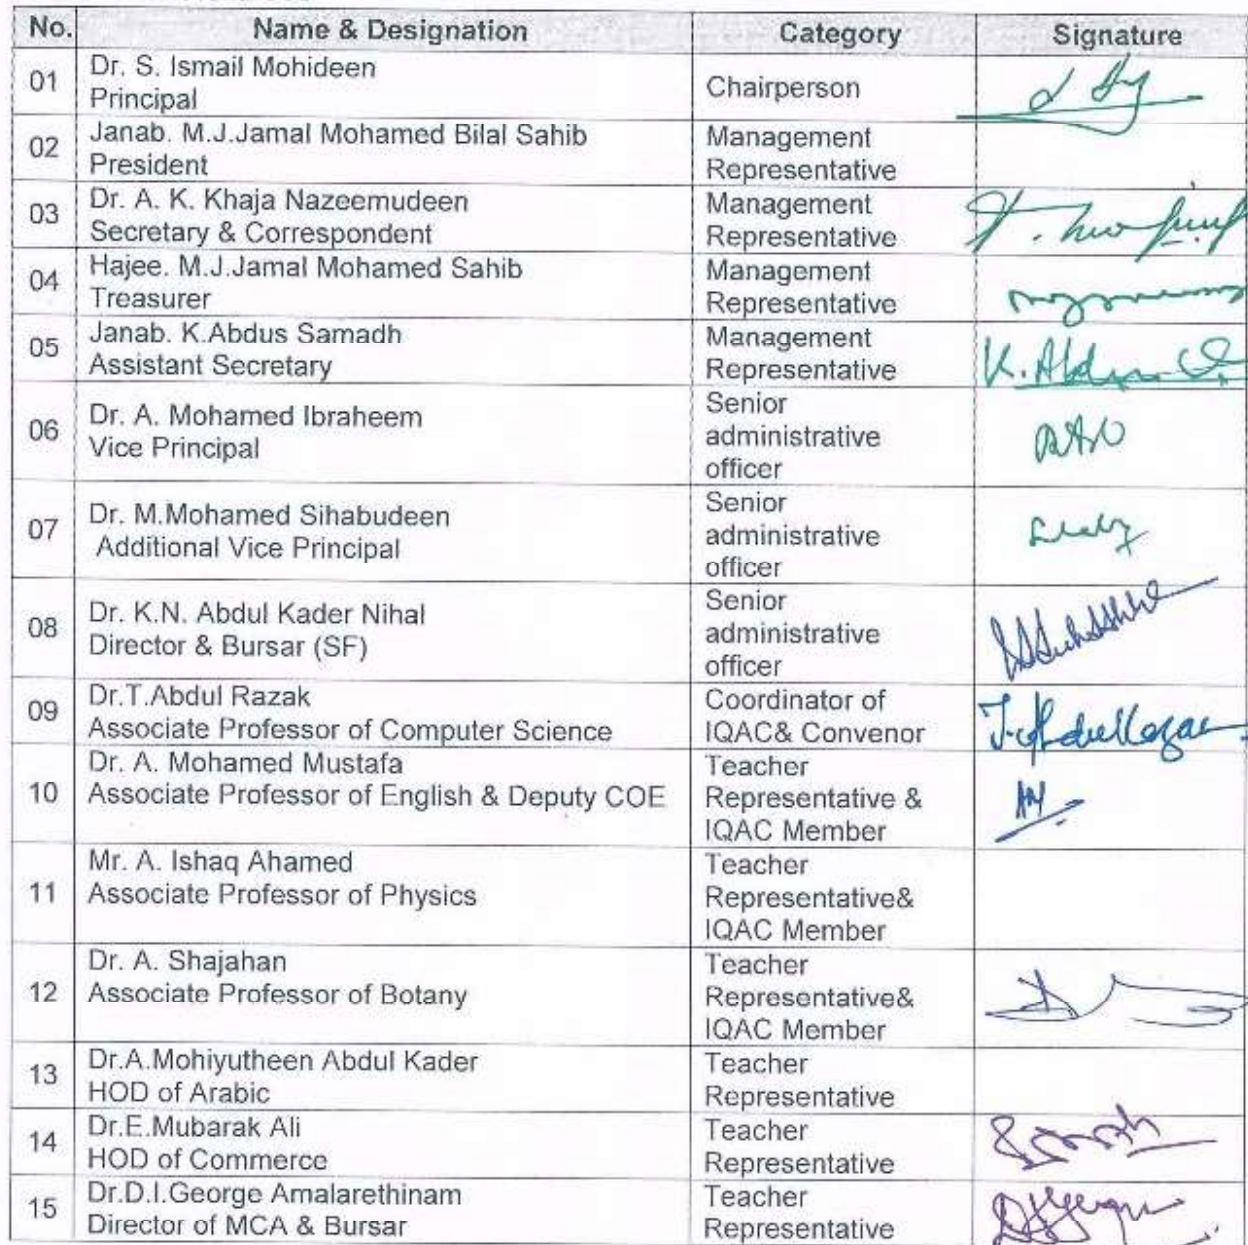 No. Name & Designation Category Signature
01 Dr. S. Ismail Mohideen
Principal
Chairperson
02 Janab. M.J.Jamal Mohamed Bilal Sahib
President
Management
Representative
03 Dr. A. K. Khaja Nazeemudeen
Secretary & Correspondent
Management
Representative
04 Hajee. M.J.Jamal Mohamed Sahib
Treasurer
Management
Representative
05 Janab. K.Abdus Samadh
Assistant Secretary
Management
Representative
06 Dr. A. Mohamed Ibraheem
Vice Principal
Senior
administrative
officer
07 Dr. M.Mohamed Sihabudeen
Additional Vice Principal
Senior
administrative
officer
08 Dr. K.N. Abdul Kader Nihal
Director & Bursar (SF)
Senior
administrative
officer
09 Dr.T.Abdul Razak
Associate Professor of Computer Science
Coordinator of
IQAC& Convenor
10 Dr. A. Mohamed Mustafa
Associate Professor of English & Deputy COE
Teacher
Representative &
IQAC Member
11 Mr. A. Ishaq Ahamed
Associate Professor of Physics
Teacher
Representative&
IQAC Member
12 Dr. A. Shajahan
Associate Professor of Botany
Teacher
Representative&
IQAC Member
13 Dr.A.Mohiyutheen Abdul Kader
HOD of Arabic
Teacher
Representative
14 Dr.E.Mubarak Ali
HOD of Commerce
Teacher
Representative
15 Dr.D.I.George Amalarethinam
Director of MCA & Bursar
Teacher
Representative